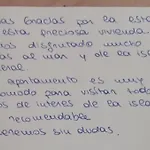 as Gracias por la est
esta preciosa vivienda.
os disfrutado mucho
as al mar y de la is
eral
apartamento es muy
omodo para visitar todo
s de interes de la isla
recomendable
eremos sin dudas.